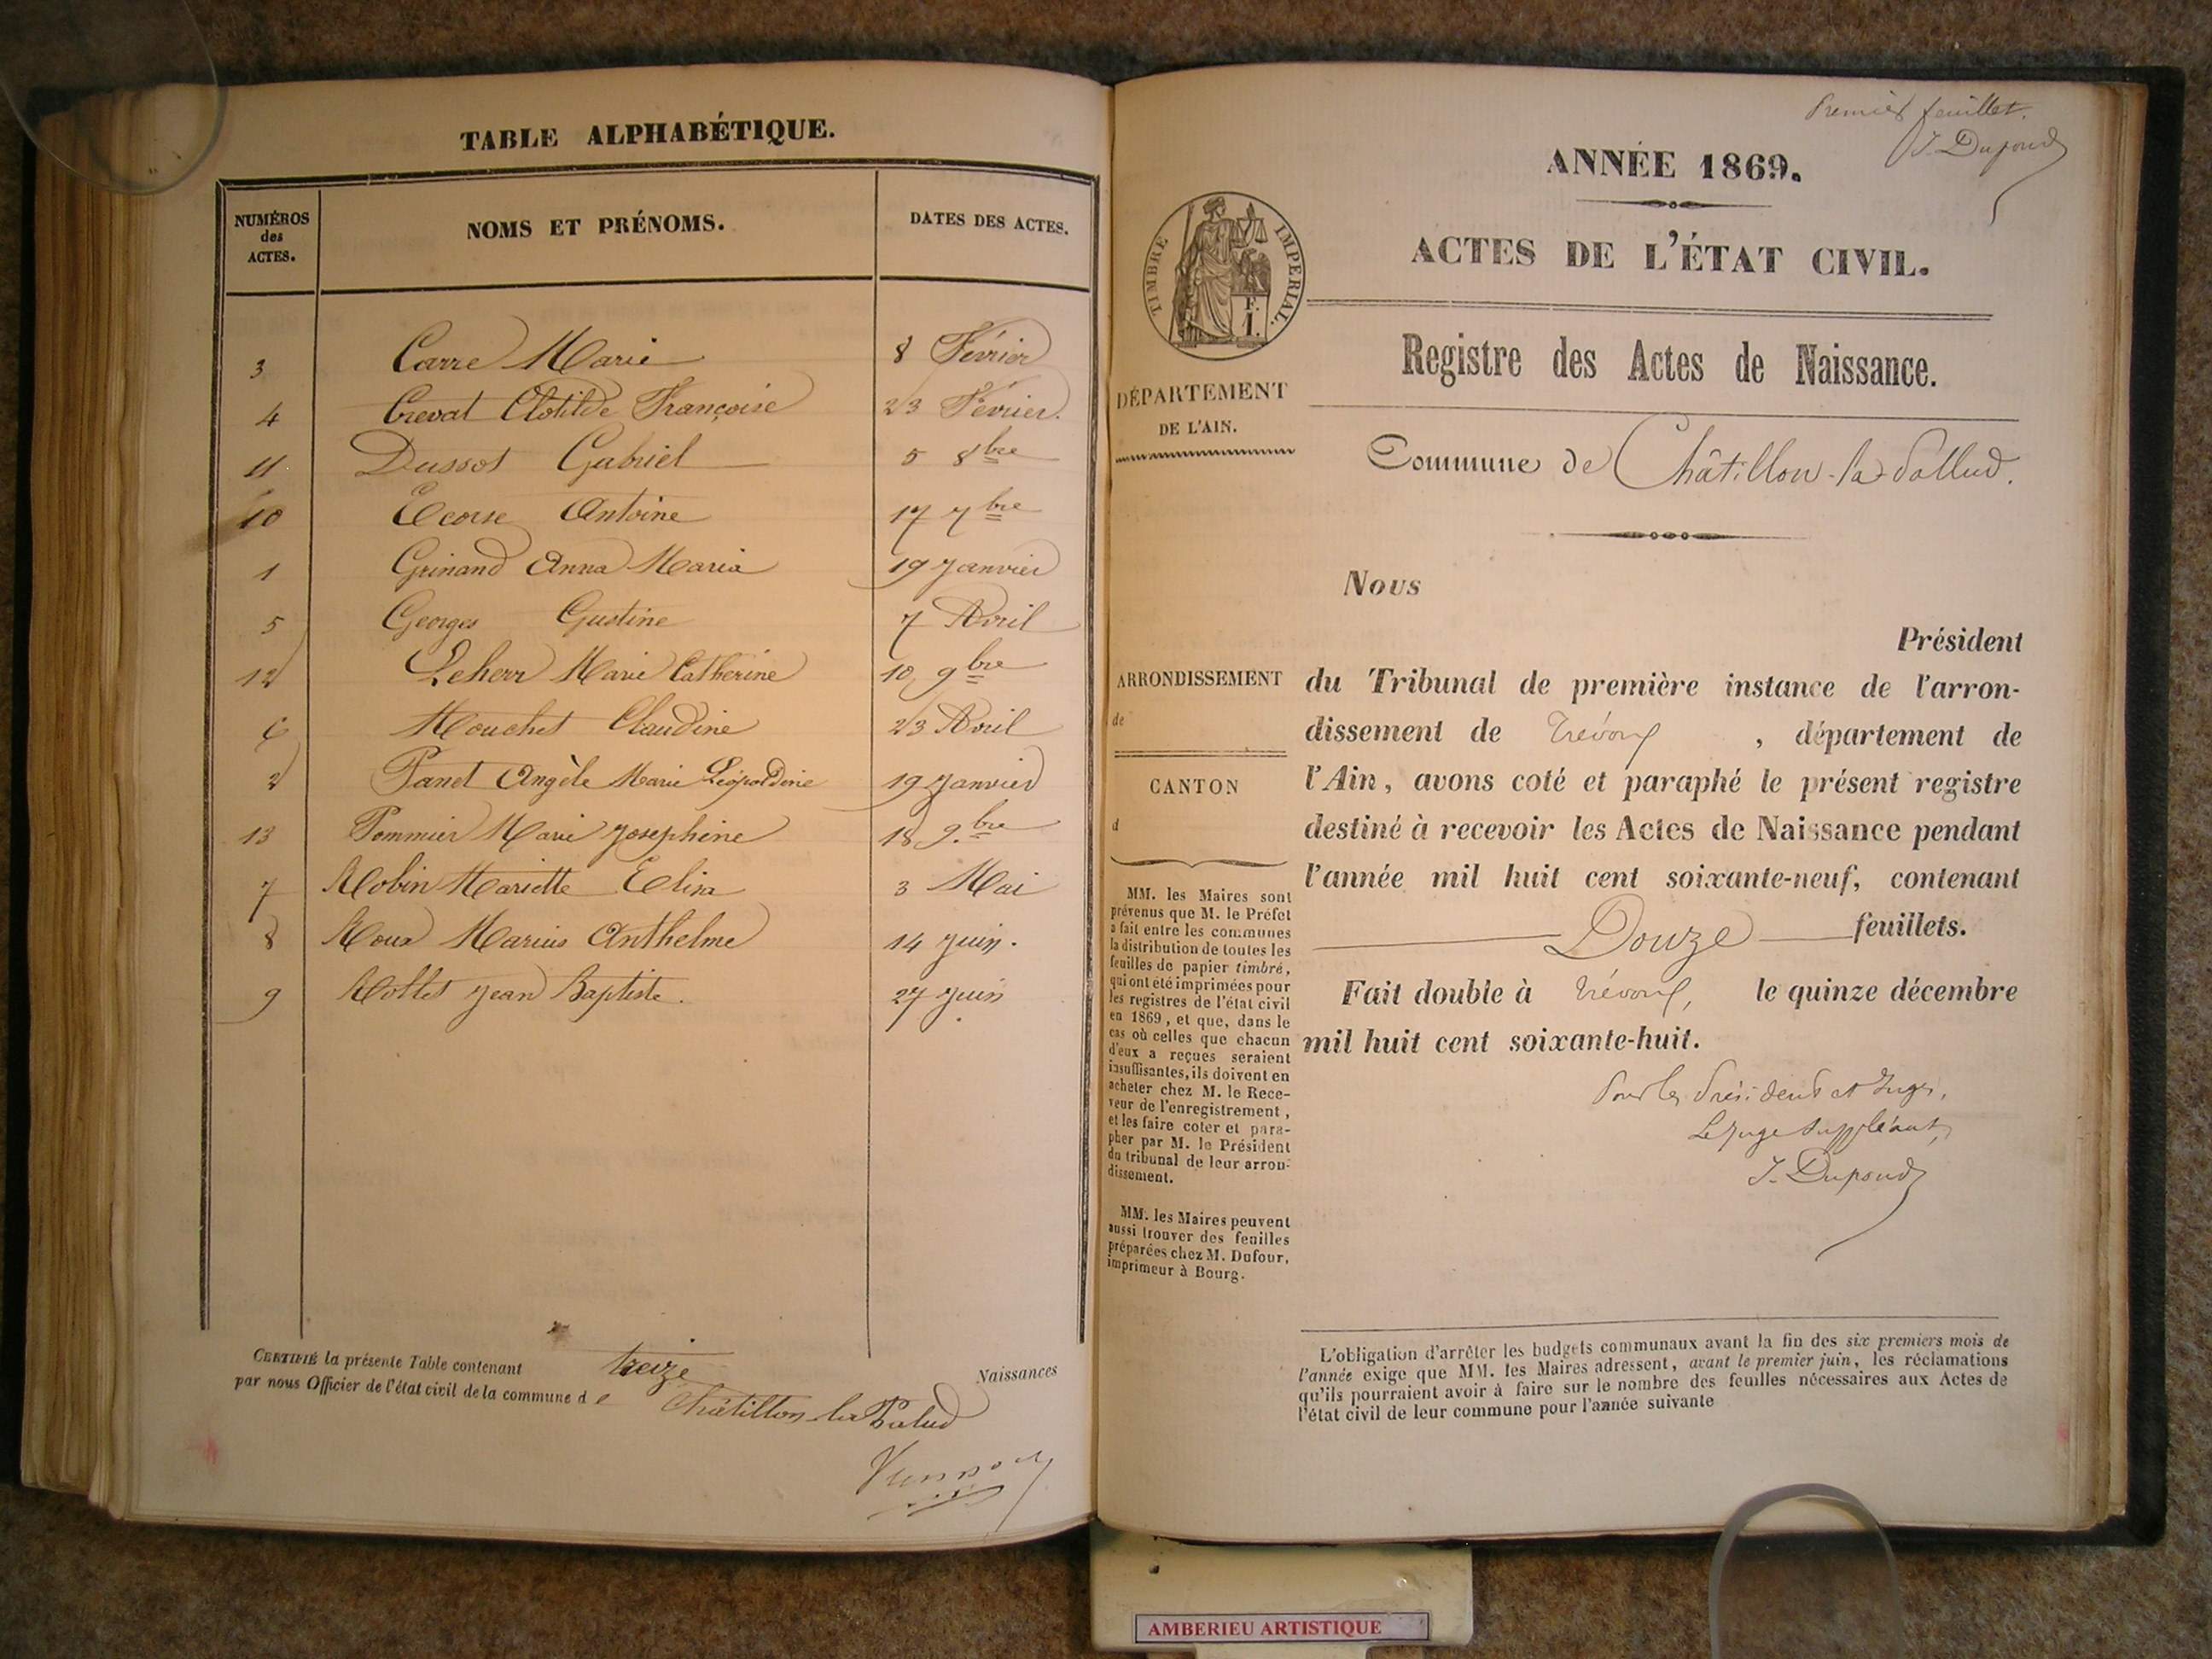 TABLE ALPHABÉTIQUE.
NUMÉROS des ACTES. NOMS ET PRÉNOMS. DATES DES ACTES.
3 Carre Marie 8 Février
4 Creval Clotilde Françoise 23 Février.
11 Dussot Gabriel 5 8bre
10 Ecorse Antoine 17 7bre
1 Grinand Anna Maria 19 Janvier
5 Georges Gustine 7 Avril
12 Leherr Marie Catherine 10 9bre
6 Mouchet Claudine 23 Avril
2 Panet Angèle Marie Léopoldine 19 Janvier
13 Pommier Marie Josephine 18 9.bre
7 Robin Mariette Elisa 3 Mai
8 Roux Marius Anthelme 14 Juin.
9 Rollet Jean Baptiste. 27 Juin
CERTIFIÉ la présente Table contenant treize Naissances
par nous Officier de l'état civil de la commune de Châtillon la Palud
Premier feuillet.
J. Dupond
ANNÉE 1869.
ACTES DE L'ÉTAT CIVIL.
TIMBRE IMPERIAL.
F.
1.
Registre des Actes de Naissance.
DÉPARTEMENT
DE L'AIN.
Commune de Châtillon-la-Pallud.
Nous
Président
ARRONDISSEMENT
de
du Tribunal de première instance de l'arron-
dissement de Trévoux, département de
CANTON
d
l'Ain, avons coté et paraphé le présent registre
destiné à recevoir les Actes de Naissance pendant
l'année mil huit cent soixante-neuf, contenant
Douze feuillets.
Fait double à Trévoux, le quinze décembre
mil huit cent soixante-huit.
Pour les Président et Juges,
Le Juge suppléant,
J. Dupond
MM. les Maires sont
prévenus que M. le Préfet
a fait entre les communes
la distribution de toutes les
feuilles de papier timbré,
qui ont été imprimées pour
les registres de l'état civil
en 1869, et que, dans le
cas où celles que chacun
d'eux a reçues seraient
insuffisantes, ils doivent en
acheter chez M. le Rece-
veur de l'enregistrement,
et les faire coter et para-
pher par M. le Président
du tribunal de leur arron-
dissement.
MM. les Maires peuvent
aussi trouver des feuilles
préparées chez M. Dufour,
imprimeur à Bourg.
L'obligation d'arrêter les budgets communaux avant la fin des six premiers mois de
l'année exige que MM. les Maires adressent, avant le premier juin, les réclamations
qu'ils pourraient avoir à faire sur le nombre des feuilles nécessaires aux Actes de
l'état civil de leur commune pour l'année suivante
AMBERIEU ARTISTIQUE